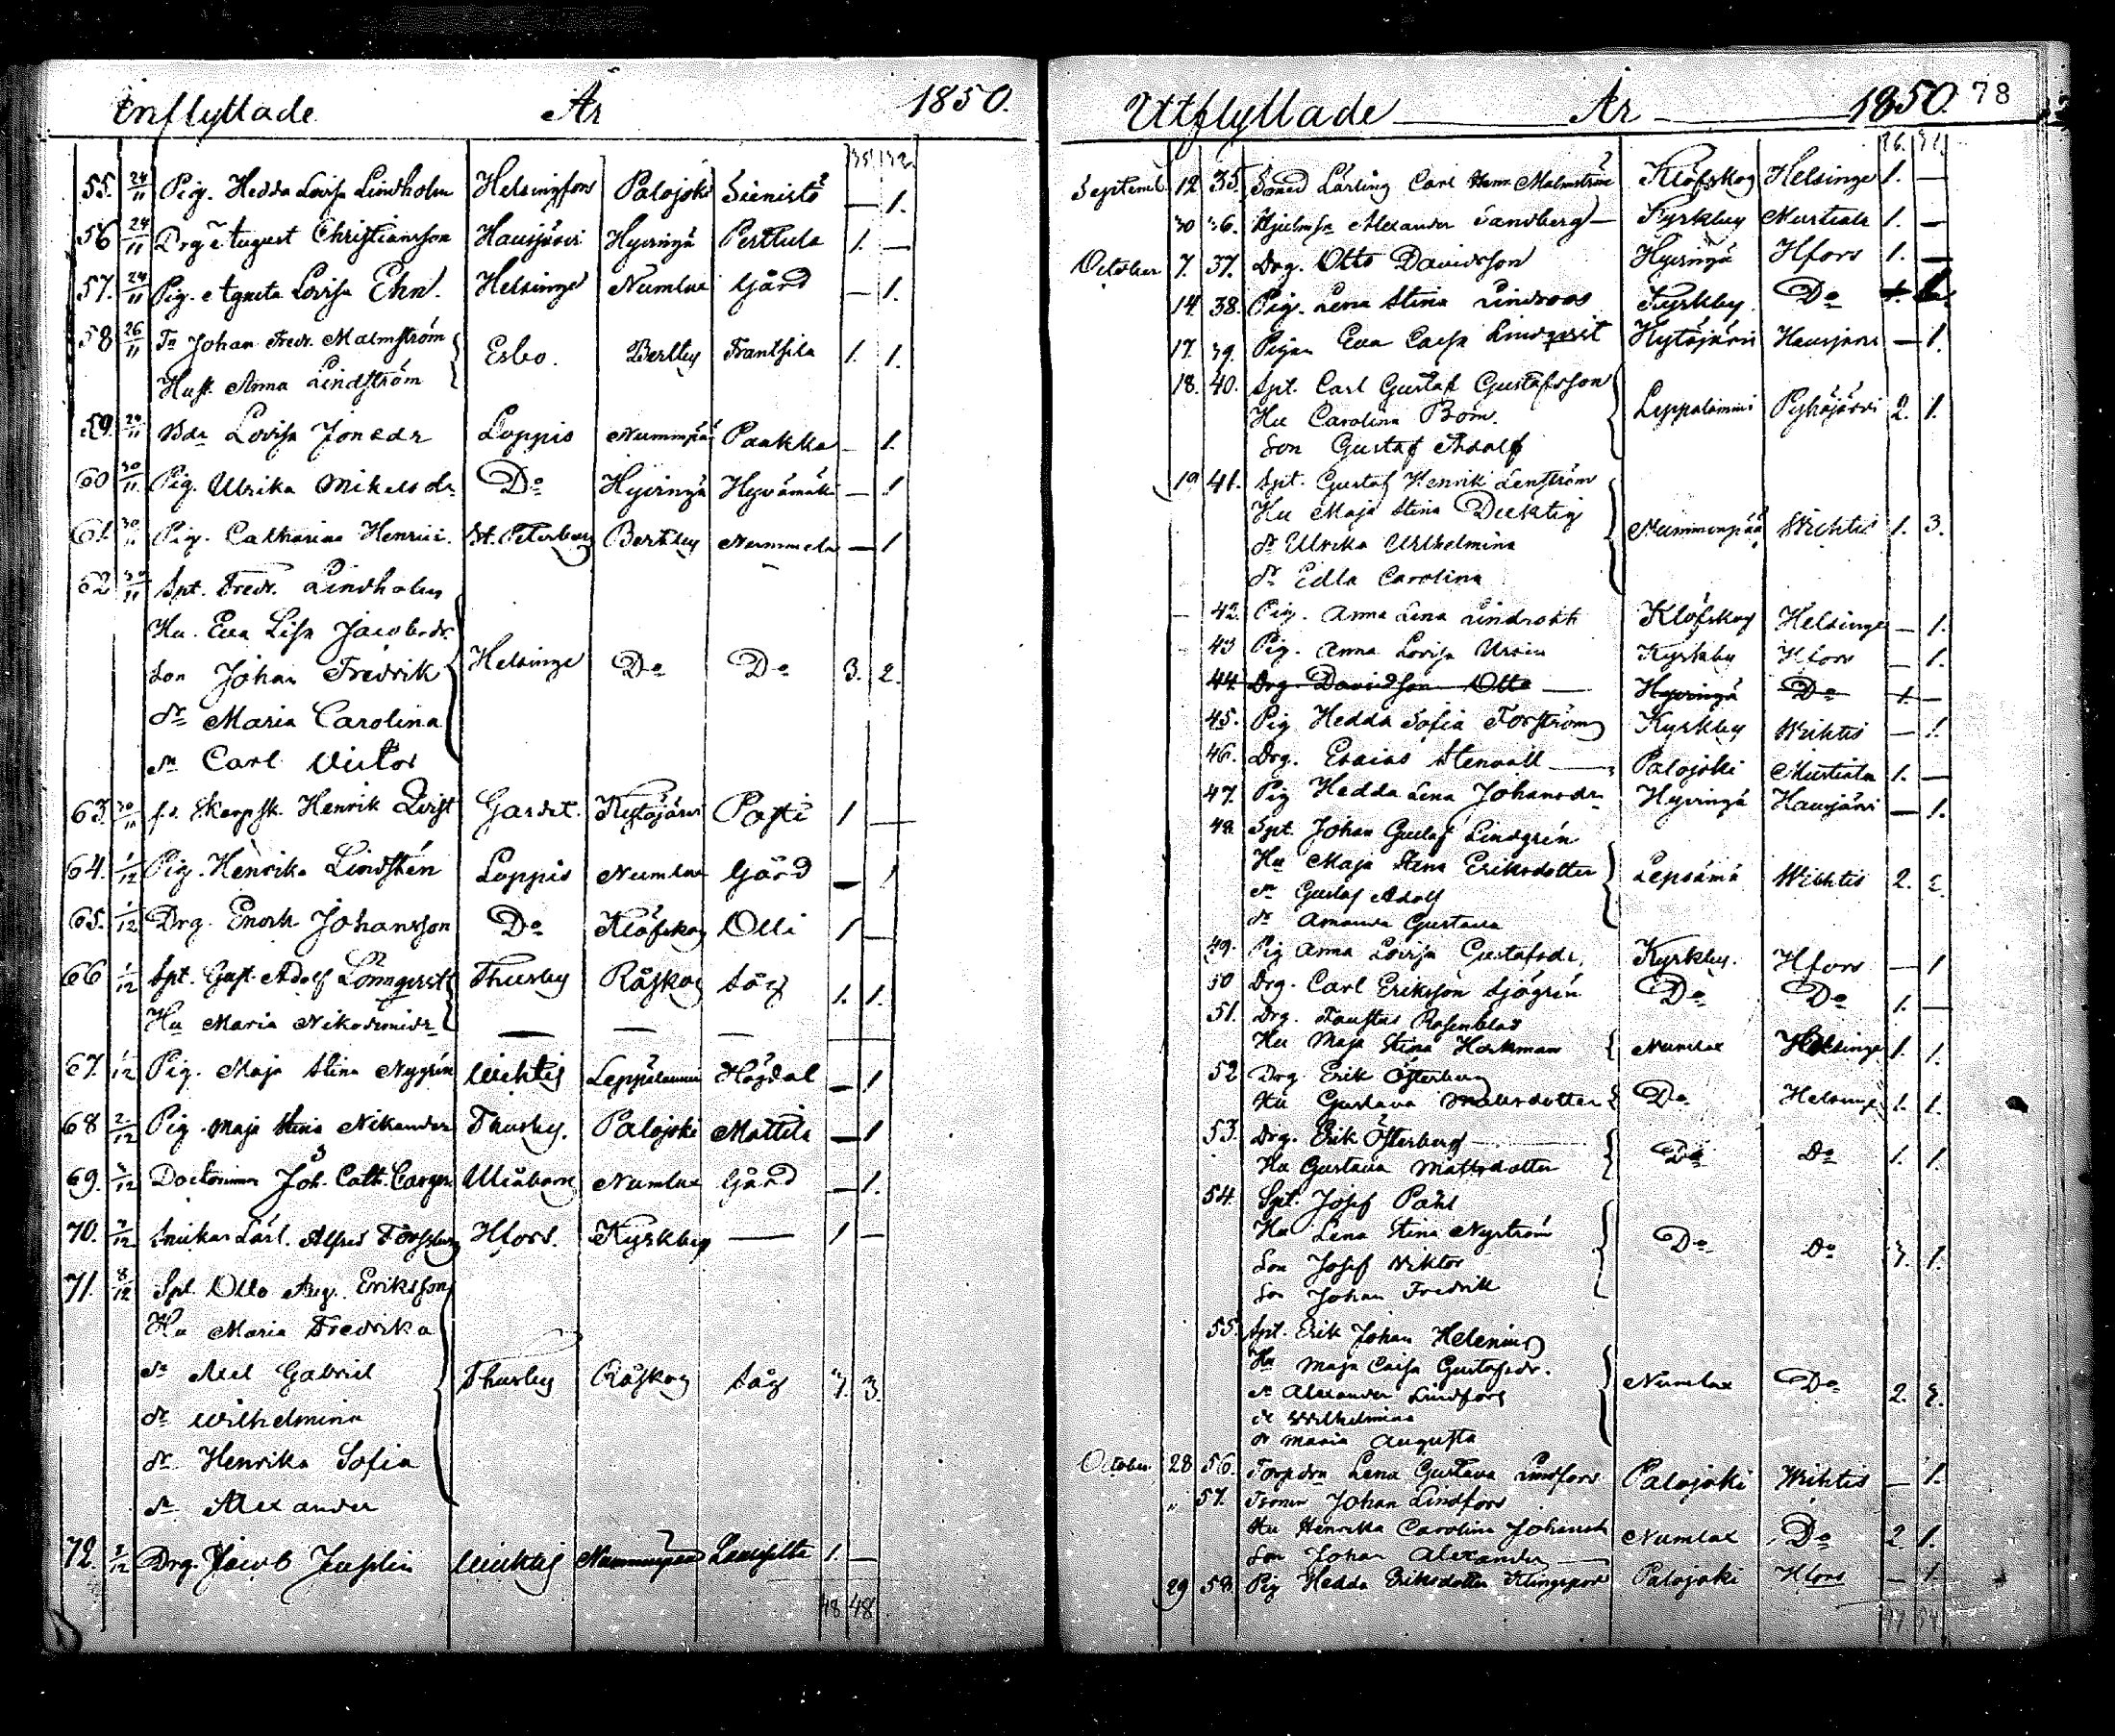 Inflyttade År 1850.
35. 32.
55. 24/11 Pig. Hedda Lovisa Lindholm Helsingfors Palojoki Sienisto — 1.
56 24/11 Drg August Christiansson Hausjärvi Hyvingä Perttula 1. —
57. 24/11 Pig. Agneta Lovisa Ehn. Helsinge Numlax Gård — 1.
58 26/11 Johan Fredr. Malmström Esbo. Bertby Frantsila 1. 1.
Hust. Anna Lindström
59. 29/11 Bdr Lovisa Jonsdr Loppis Nummenpää Paakka — 1.
60 30/11 Pig. Ulrika Mikelsdr Do Hyvingä Hyvämäki — 1
61. 30/11 Pig. Catharina Henrici. St. Peterburg Bertby Nummela — 1
62 30/11 Spt. Fredr. Lindholm
Hu. Eva Lisa Jacobsdr.
Son Johan Fredrik Helsinge Do Do 3. 2.
dr Maria Carolina
sn Carl Victor
63. 30/11 f.d. Skarpsk. Henrik Qvist Gardet. Kytäjärvi Pasti 1 —
64. 1/12 Pig. Henrika Lindstén Loppis Numlax Gård — 1
65. 1/12 Drg. Enoch Johansson Do Klöfskog Olli 1 —
66 1/12 Spt. Gust. Adolf Lönnqvist Thusby Råskog Såg 1. 1.
Hu Maria Nikodemidr — — —
67. 1/12 Pig. Maja Stina Nygrén Wichtis Leppälammi Högdal — 1
68 2/12 Pig. Maja Stina Nikander Thusby. Palojoki Mattila — 1
69. 2/12 Joh. Cath. Uleåborg Numlax Gård — 1.
70. 7/12 Snickar Lärl. Alfred Forssberg Hfors. Kyrkby — 1 —
71. 8/12 Spt. Otto Aug. Eriksson
Hu Maria Fredrika
sn Axel Gabriel Thusby Råskog Såg 3. 3.
dr Wilhelmina
dr Henrika Sofia
sn Alexander
72. 2/12 Drg. Jacob Juslin Wichtis Nummenpää 1. —
48 48
Utflyttade År 1850. 78
26. 31.
Septemb. 12 35. Lärling Carl Henr. Malmström Klöfskog Helsinge 1. —
30 36. Alexander Sandberg — Kyrkby Mustiala 1. —
October 7. 37. Drg. Otto Davidsson Hyvingä Hfors 1. —
14 38. Pig. Lena Stina Lindroos Kyrkby. Do 1.
17. 39. Pigan Eva Caisa Lindqvist Kytäjärvi Hausjärvi — 1.
18. 40. Spt. Carl Gustaf Gustafsson
Hu Carolina Bom. Leppälammi Pyhäjärvi 2. 1.
Son Gustaf Adolf
19 41. Spt. Gustaf Henrik Lenström
Hu Maja Stina Ducktig Nummenpää Wichtis 1. 3.
dr Ulrika Wilhelmina
dr Edla Carolina
42. Pig. Anna Lena Lindroth Klöfskog Helsinge — 1.
43 Pig. Anna Lovisa Ursin Kyrkby Hfors — 1.
44. Drg. Davidsson Otto — Hyvingä Do 1. —
45. Pig Hedda Sofia Forström Kyrkby Wichtis — 1.
46. Drg. Esaias Stenvall — Palojoki Mustiala 1. —
47. Pig Hedda Lena Johansdr Hyvingä Hausjärvi — 1.
48 Spt. Johan Gustaf Lindgrén
Hu Maja Stina Eriksdotter Lepsämä Wichtis 2. 2.
sn Gustaf Adolf
dr Amanda Gustava
49. Pig Anna Lovisa Gustafsdr. Kyrkby. Hfors — 1
50 Drg. Carl Eriksson Sjögrén Do Do 1. —
51. Drg. Faustus Rosenblad
Hu Maja Stina Hackman Numlax Helsinge 1. 1.
52 Drg Erik Österberg
Hu Gustava Matsdotter Do Helsinge 1. 1.
53. Drg. Erik Österberg
Hu Gustava Mattsdotter Do Do 1. 1.
54. Spt. Josef Pahl
Hu Lena Stina Nyström Do Do 3. 1.
Son Josef Viktor
Son Johan Fredrik
55. Spt. Erik Johan Helenius
Hu Maja Caisa Gustafsdr. Numlax Do 2. 3.
sn Alexander Lindfors
dr Wilhelmina
dr Maria Augusta
October. 28 56. Torpdr Lena Gustava Lindfors Palojoki Wichtis — 1.
" 57. Johan Lindfors
Hu Henrika Carolina Johansdr Numlax Do 2. 1.
Son Johan Alexander —
29 58. Pig Hedda Eriksdotter Klingspor Palojoki Hfors — 1.